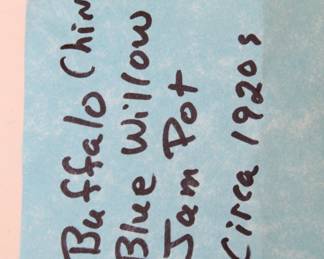 Buffalo Chin
Blue Willow
Jam Pot
Circa 1920s